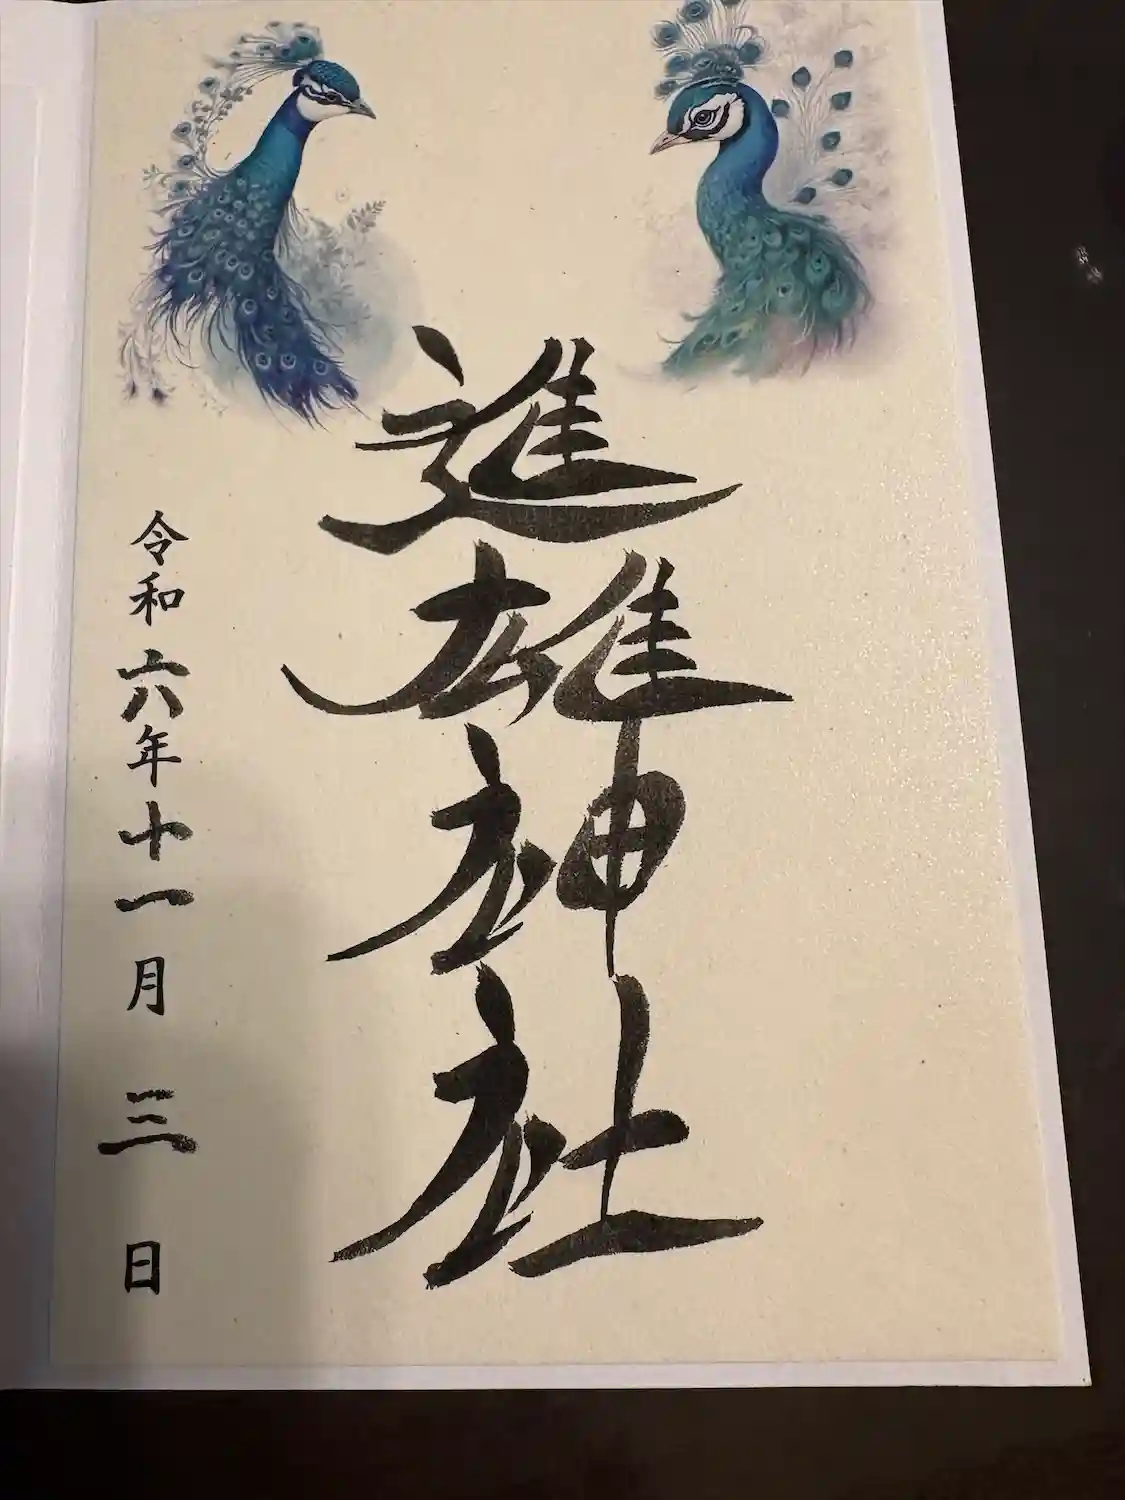 進雄神社
令和六年十一月三日